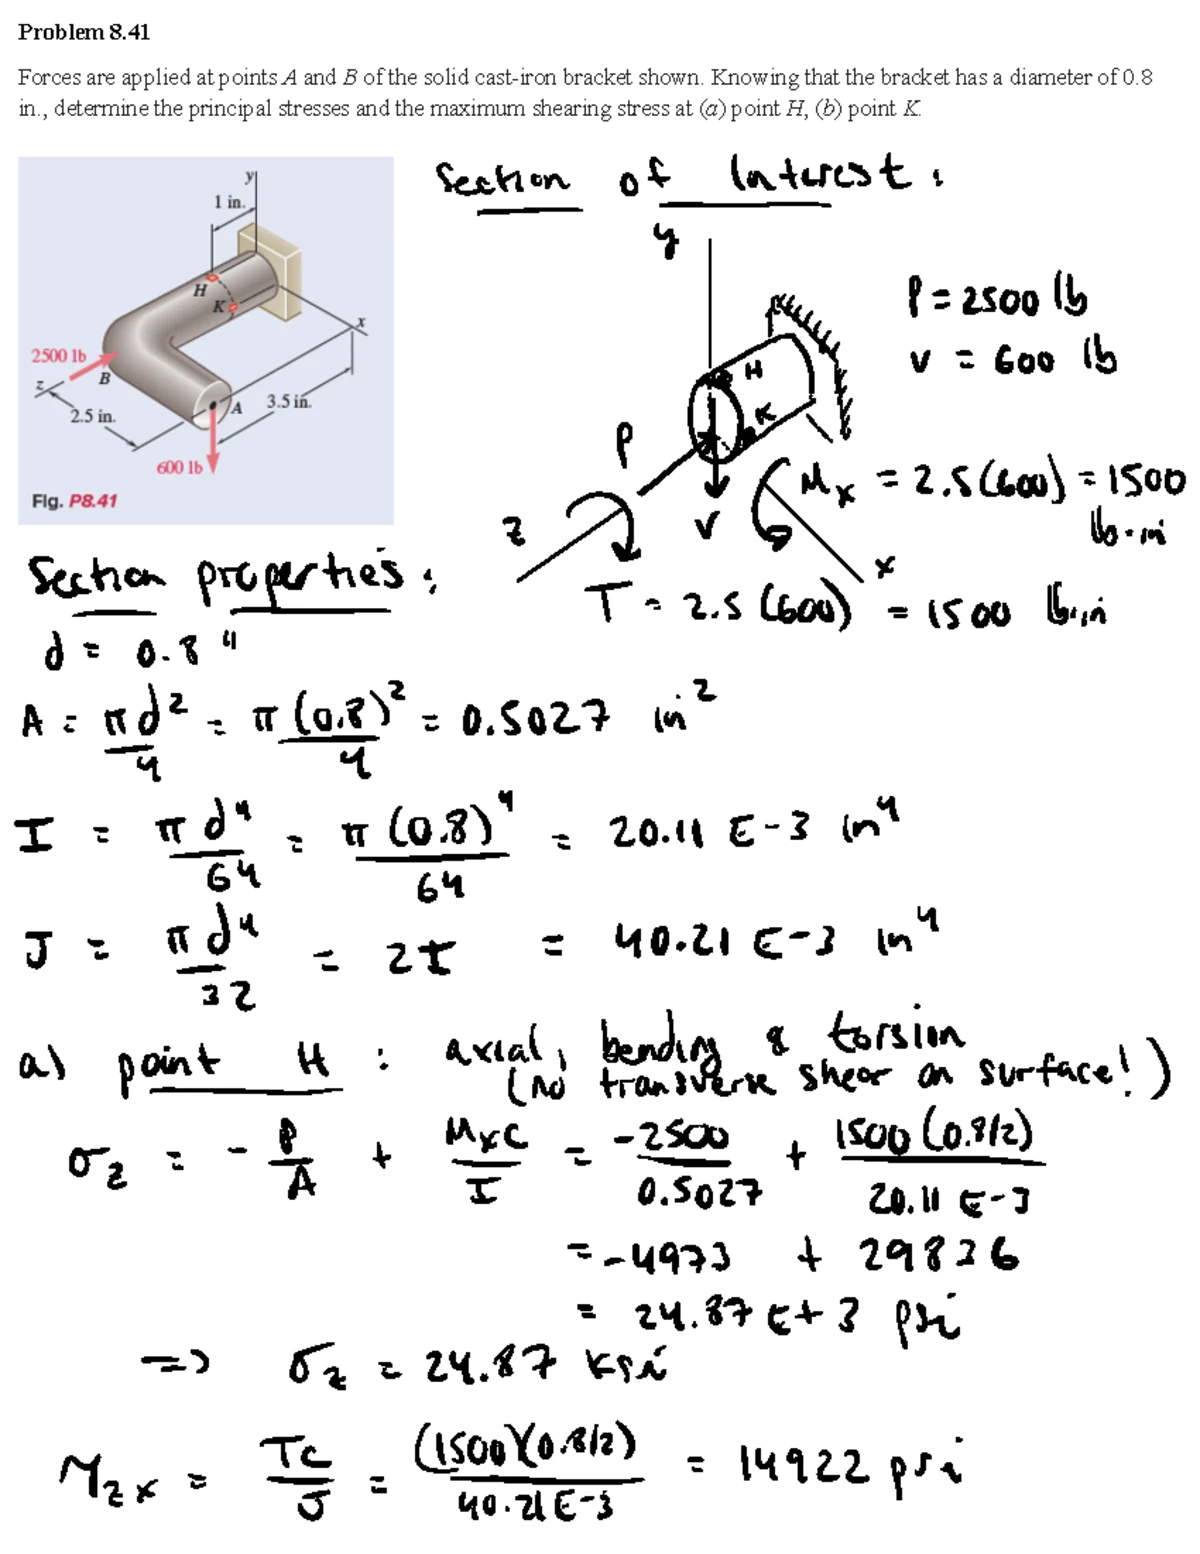 Problem 8.41
Forces are applied at points A and B of the solid cast-iron bracket shown. Knowing that the bracket has a diameter of 0.8
in., determine the principal stresses and the maximum shearing stress at (a) point H, (b) point K.
Section of Interest:
y
1 in.
H
K
x
2500 lb
B
z
A
3.5 in.
2.5 in.
600 lb
Fig. P8.41
y
H
K
P
V
z
x
P = 2500 lb
V = 600 lb
Mx = 2.5(600) = 1500
lb·in
T = 2.5 (600) = 1500 lb·in
Section properties:
d = 0.8"
A = πd²/4 = π(0.8)²/4 = 0.5027 in²
I = πd⁴/64 = π(0.8)⁴/64 = 20.11 E-3 in⁴
J = πd⁴/32 = 2I = 40.21 E-3 in⁴
a) point H : axial, bending & torsion
(no transverse shear on surface!)
σz = - P/A + MxC/I = -2500/0.5027 + 1500(0.8/2)/20.11 E-3
= -4973 + 29836
= 24.87 E+3 psi
=> σz = 24.87 ksi
τzx = Tc/J = (1500)(0.8/2)/40.21E-3 = 14922 psi